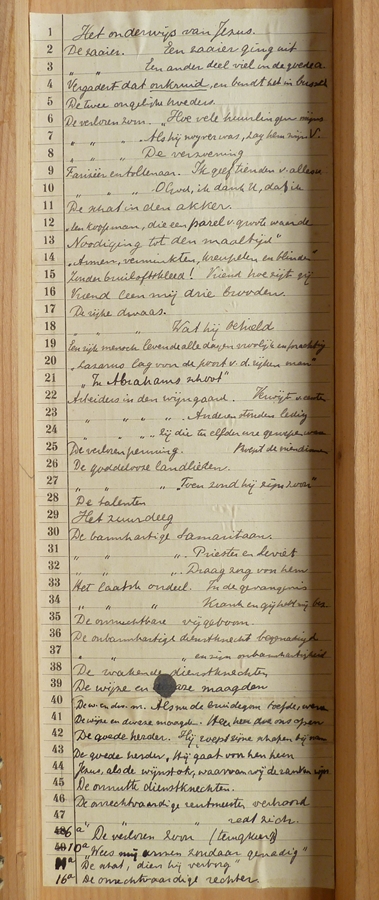 1 Het onderwijs van Jezus.
2 De zaaier. Een zaaier ging uit
3 " " Een ander deel viel in de goede a
4 Vergadert dat onkruid, en bendt het in
5 De twee ongelijke broeders.
6 De verloren zoon. "Hoe vele huurlingen mijns
7 " " " Als hij nog verre was, zag hem zijn V.
8 " " " De verzoening
9 Farizeër en tollenaar. Ik geef tienden v. alles
10 " " " O God, ik dank U, dat ik
11 De schat in den akker.
12 "een koopman, die een parel v. groote waarde
13 Noodiging tot den maaltijd"
14 "Armen, verminkten, kreupelen en blinden"
15 Zonder bruiloftskleed! Vriend hoe zijt gij
16 Vriend leen mij drie brooden.
17 De rijke dwaas.
18 " " " Wat hij behield
19 Een rijk mensch levende alle dagen vroolijk en prachtig
20 "Lazarus lag voor de poort v. d. rijken man"
21 "In Abrahams schoot"
22 Arbeiders in den wijngaard.
23 " " " " Anderen stonden ledig
24 " " " zij die te elfder ure
25 De verloren penning. Roept de vriendinnen
26 De goddelooze landlieden.
27 " " " "Toen zond hij zijn zoon"
28 De talenten
29 Het zuurdeeg
30 De barmhartige Samaritaan.
31 " " " Priester en Leviet
32 " " " Draag zorg voor hem
33 Het laatste oordeel. In de gevangenis
34 " " " Krank en gij hebt mij
35 De onvruchtbare vijgeboom.
36 De onbarmhartige dienstknecht
37 " " " en zijn onbarmhartigheid
38 De wakende dienstknechten
39 De wijze en dwaze maagden
40 De w. en dw. m. Als nu de bruidegom
41 De wijze en dwaze maagden. Heer, heer doe ons open
42 De goede herder. Hij roept zijne schapen bij name
43 De goede herder, Hij gaat voor hen heen
44 Jezus, als de wijnstok, waarvan wij de ranken zijn
45 De onnutte dienstknechten.
46 De onrechtvaardige rentmeester verhoord
47 " " " redt zich.
48 6a De verloren zoon (terugkeer)
49 10a "Wees mij armen zondaar genadig"
11a De schat, dien hij verborg"
16a De onrechtvaardige rechter.